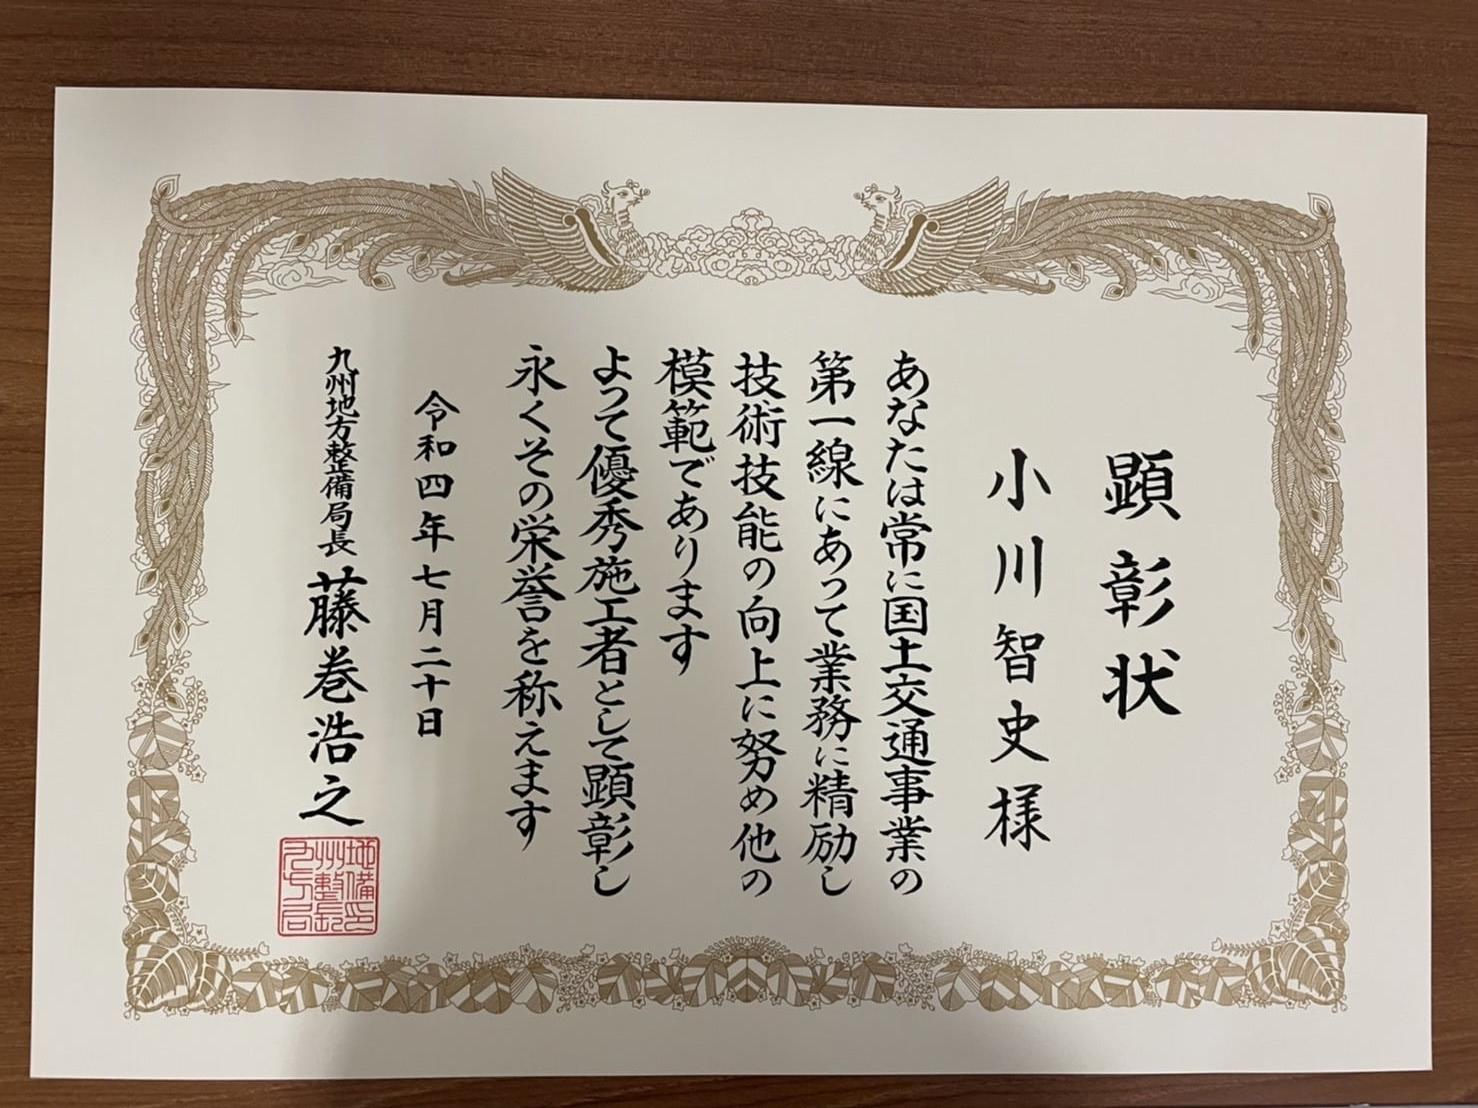 顕彰状
小川智史様
あなたは常に国土交通事業の
第一線にあって業務に精励し
技術技能の向上に努め他の
模範であります
よって優秀施工者として顕彰し
永くその栄誉を称えます
令和四年七月二十日
九州地方整備局長 藤巻浩之